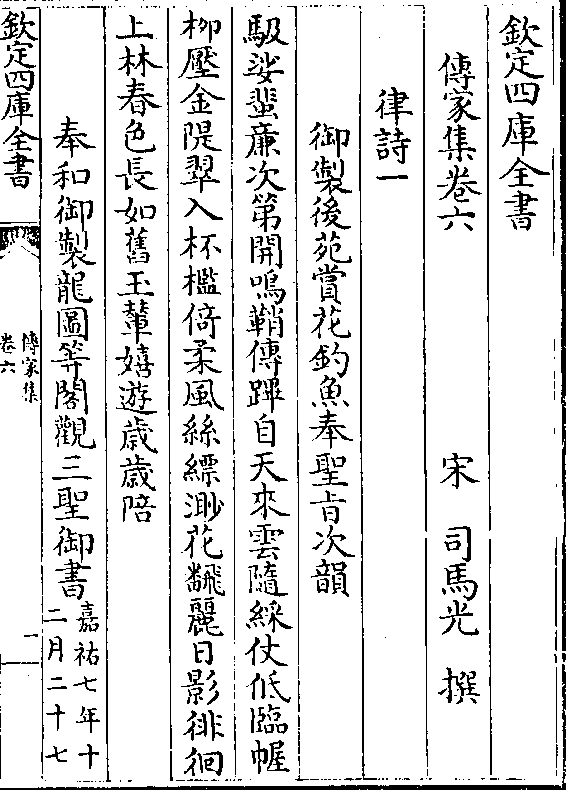 欽定四庫全書
傳家集卷六
宋　司馬光　撰
律詩一
御製後苑賞花釣魚奉聖旨次韻
馺娑蜚廉次第開鳴鞘傳蹕自天來雲隨綵仗低臨幄
柳壓金隄翠入杯檻倚柔風絲縹渺花飜麗日影徘徊
上林春色長如舊玉輦嬉遊歳歳陪
奉和御製龍圖等閣觀三聖御書
嘉祐七年十
二月二十七
欽定四庫全書
傳家集
卷六
一